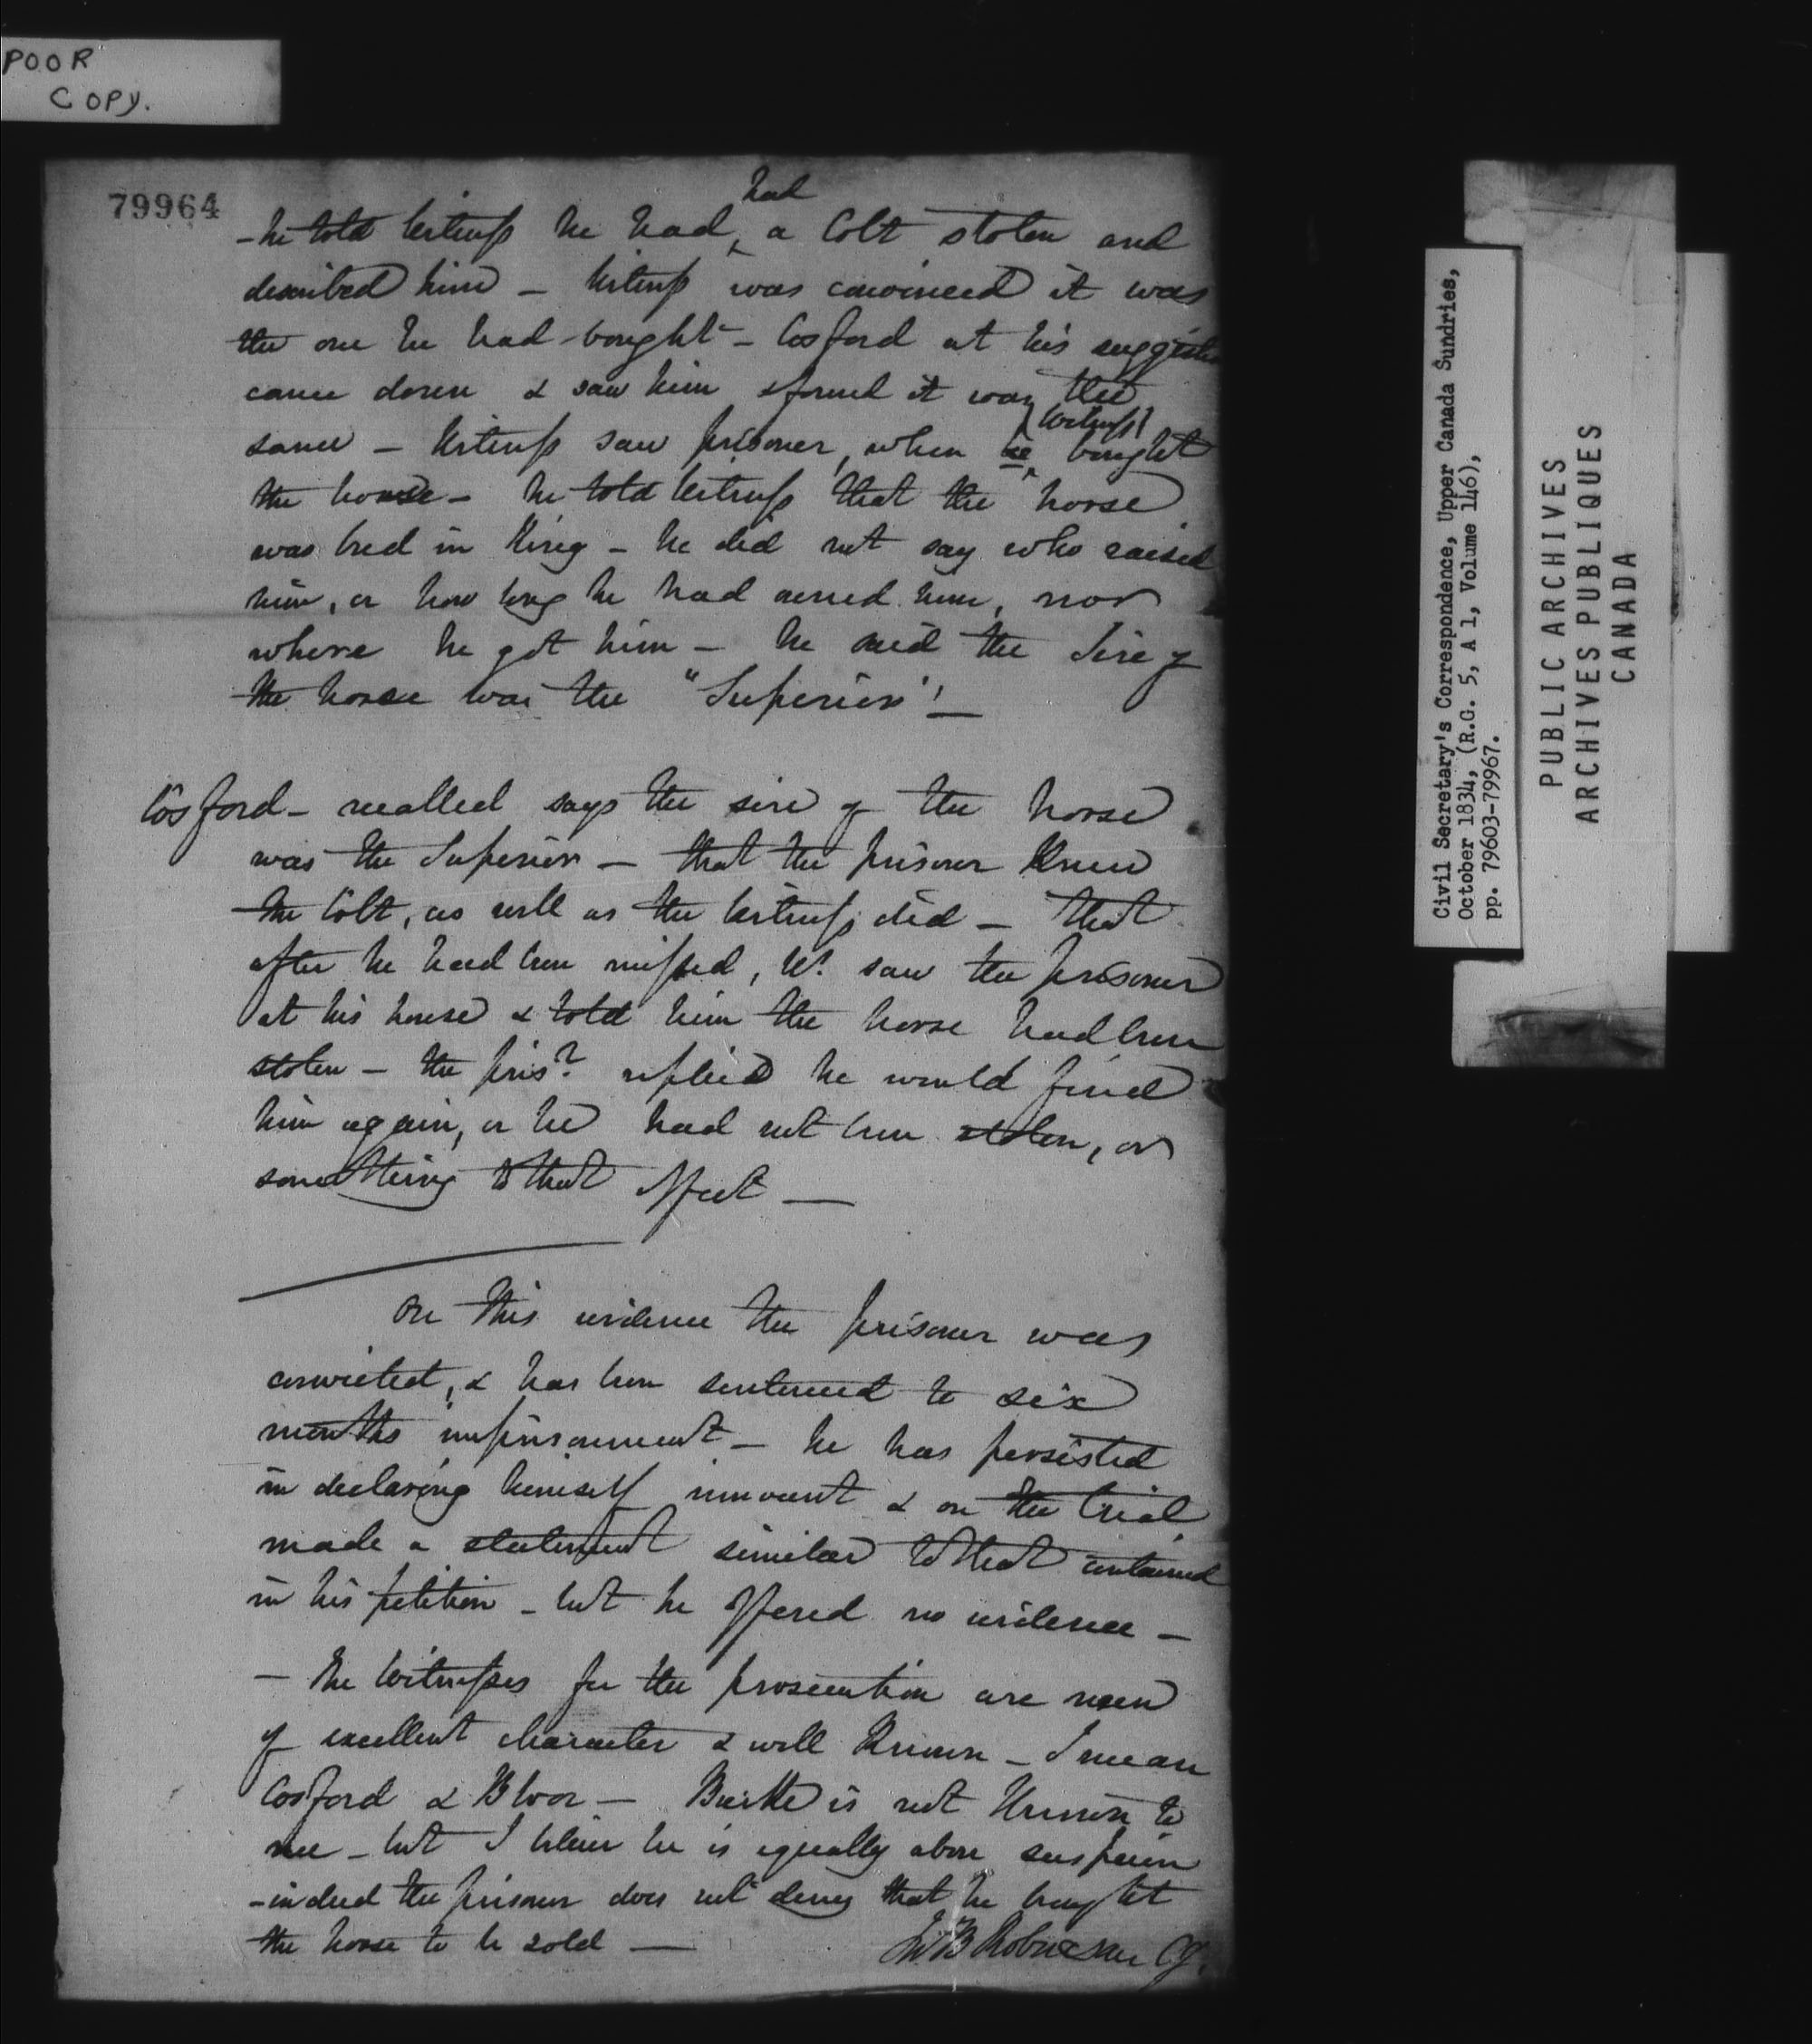 POOR
COPY.
79964
had
- he told Witness he had ^ a Colt stolen and
described him - Witness was convinced it was
the one he had bought - Cosford at his suggestion
came down & saw him & found it was the
Witness
same - Witness saw prisoner, when he ^ bought
the horse - he told Witness that the horse
was bred in King - he did not say who raised
him, or how long he had owned him, nor
where he got him - he said the Sire of
the horse was the "Superior" -
Cosford - recalled says the sire of the horse
was the Superior - that the prisoner knew
the Colt, as well as the Witness did - that
after he had been missed, Ws. saw the prisoner
at his house & told him the horse had been
stolen - the prisr. replied he would find
him again, or he had not been stolen, or
something to that effect -
On this evidence the prisoner was
convicted, & has been sentenced to six
months imprisonment - he has persisted
in declaring himself innocent & on the trial
made a statement similar to that contained
in his petition - but he offered no evidence -
- The Witnesses for the prosecution are men
of excellent character & well known - I mean
Cosford & Bloor - is not known to
me - but I believe he is equally above suspicion
- indeed the prisoner does not deny that he brought
the horse to be sold -
Jno. B Robinson CJ.
Civil Secretary's Correspondence, Upper Canada Sundries,
October 1834, (R.G. 5, A 1, Volume 146),
pp. 79603-79967.
PUBLIC ARCHIVES
ARCHIVES PUBLIQUES
CANADA